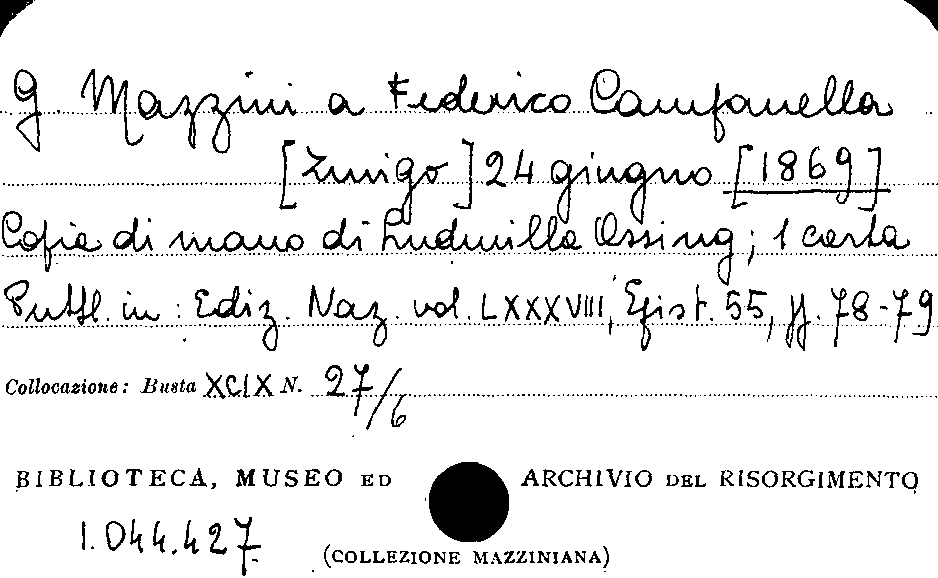 G. Mazzini a Federico Campanella
[Zurigo] 24 giugno [1869]
Copia di mano di Ludmilla Assing; 1 carta
Pubbl. in: Ediz. Naz. vol. LXXXVIII, Epist. 55, pp. 78-79
Collocazione: Busta XCIX N. 27/6
BIBLIOTECA, MUSEO ED ARCHIVIO DEL RISORGIMENTO
1.044.427
(COLLEZIONE MAZZINIANA)